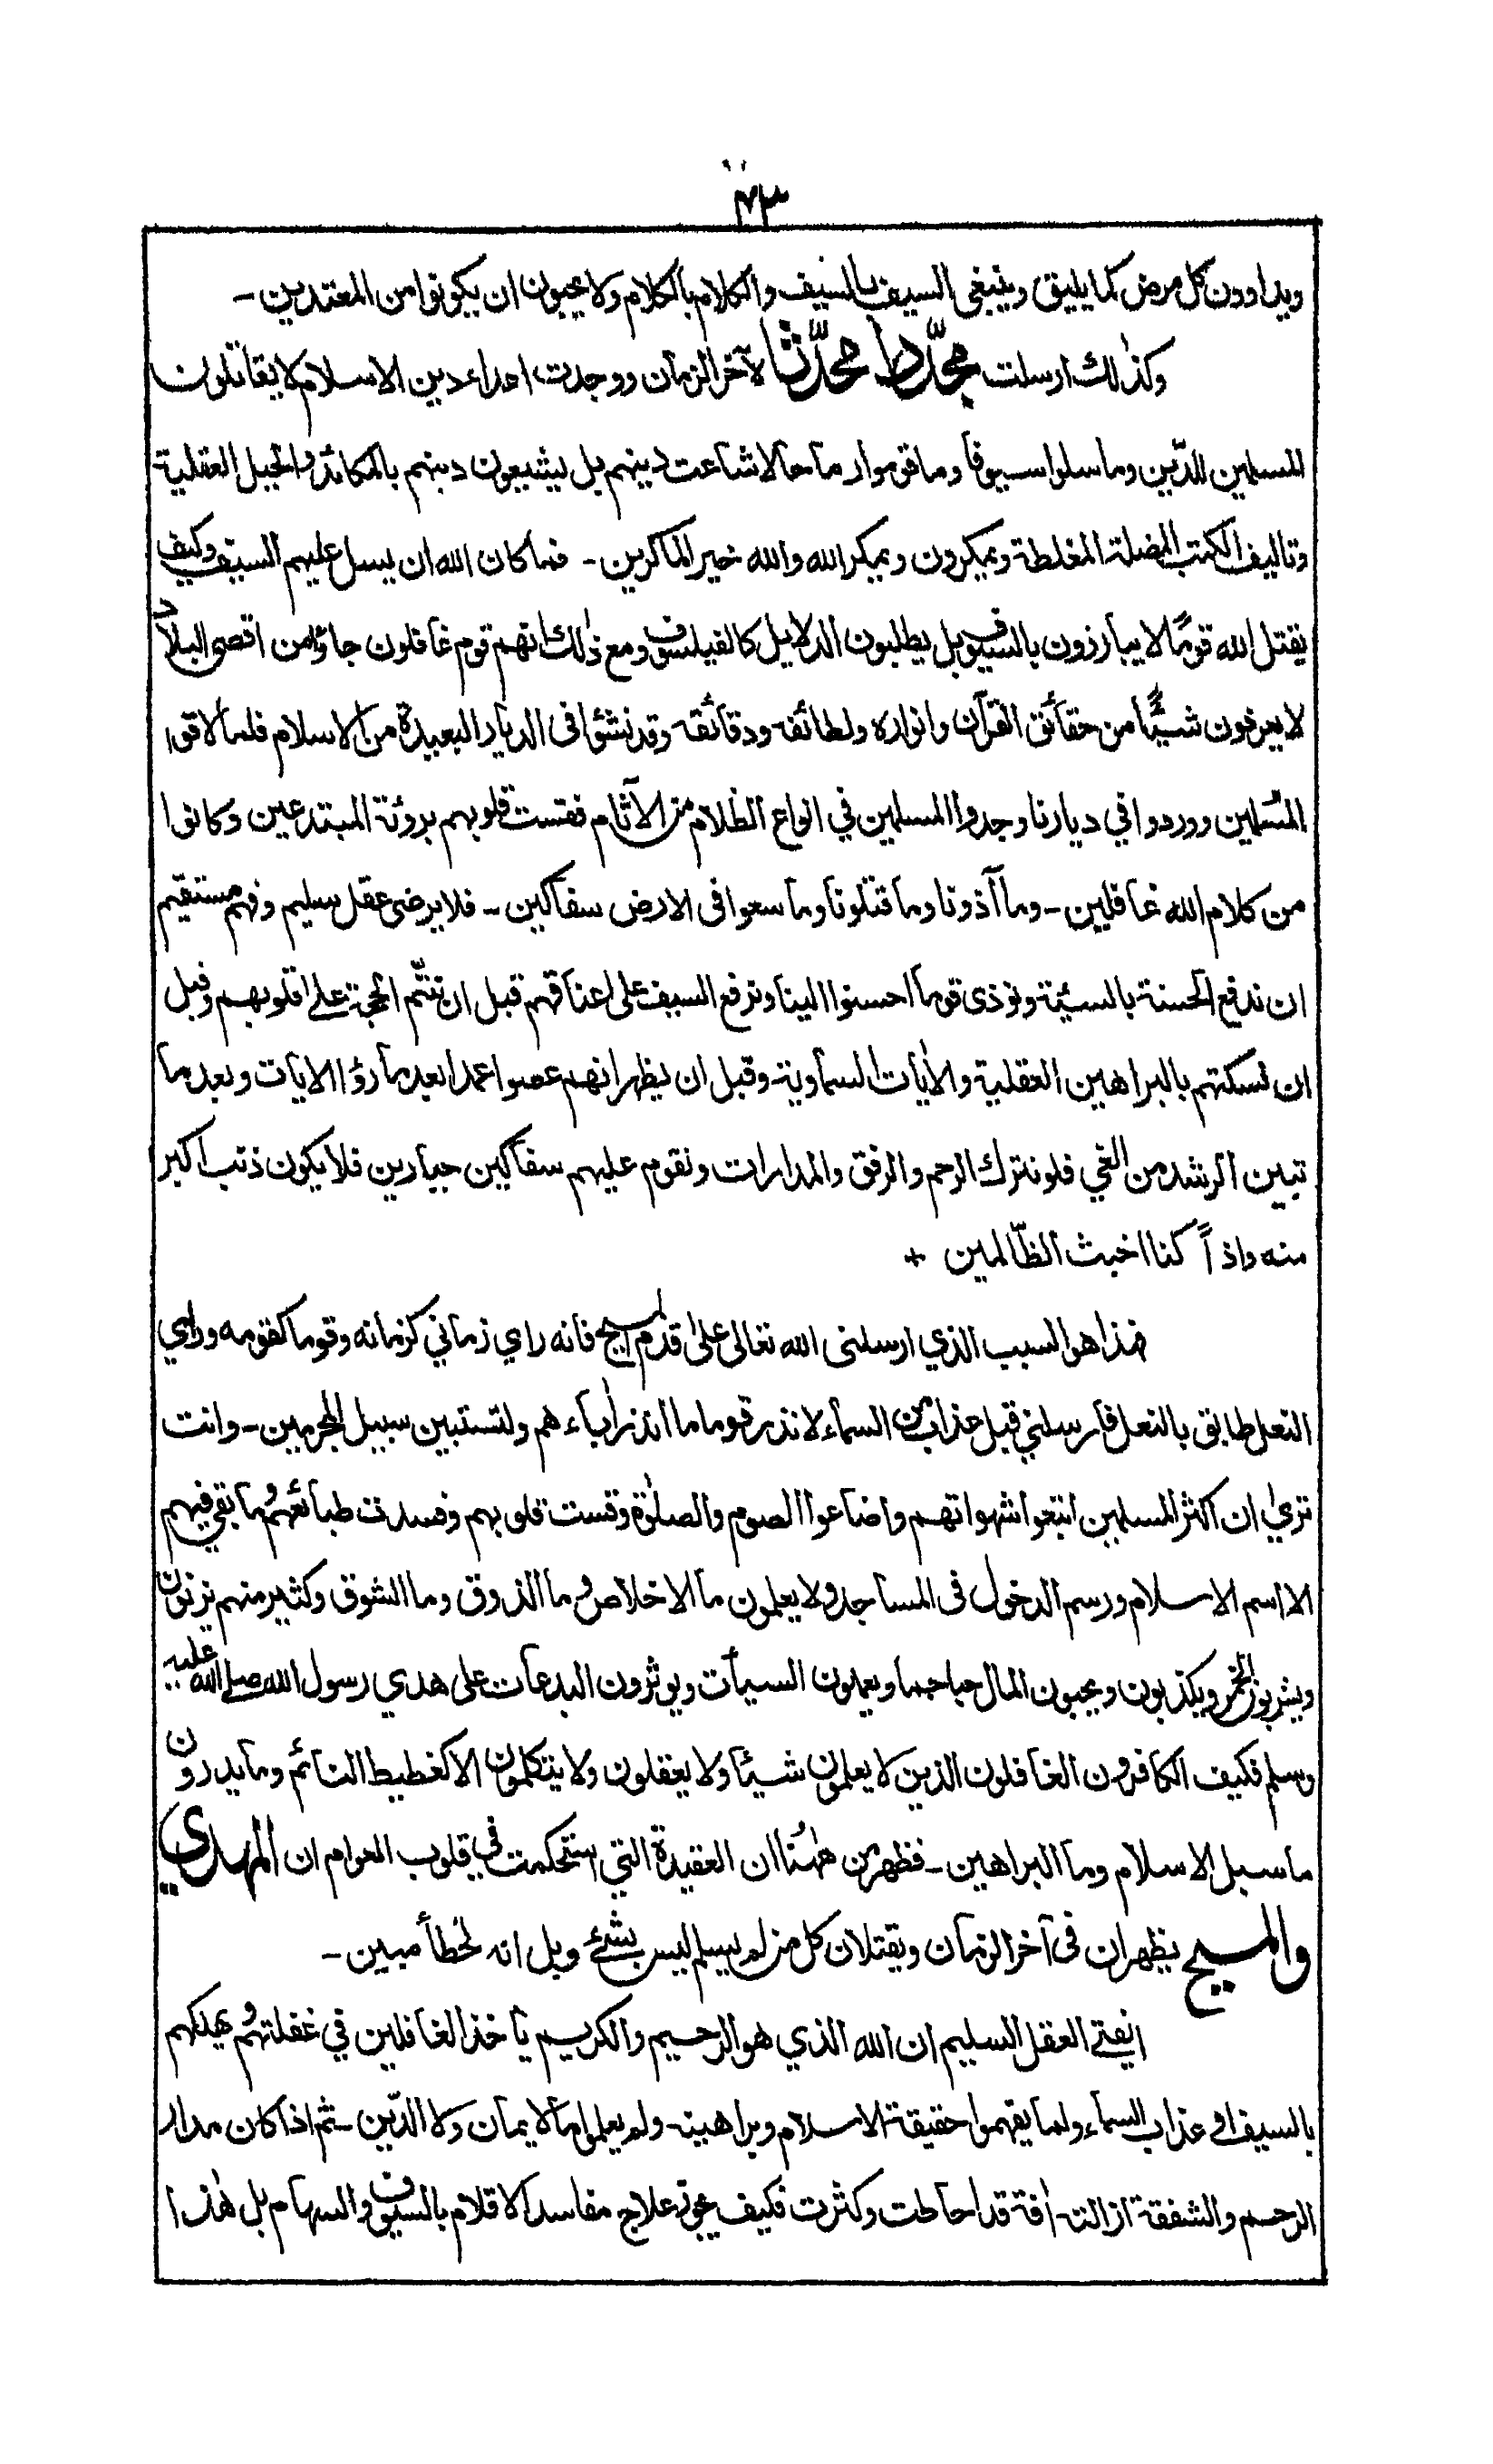 ۷۳
ويداوون كل مرض كما يليق وينبغي السيف بالسيف والكلام بالكلام ولا يحبون ان يكونوا من المعتدين -
وكذٰلك ارسلت مجدّدا محدّثا لآخر الزمان ووجدت اعداء دين الاسلام لا يقاتلون
المسلمين للدّين وما سلوا سيوفا وما قوموا رماحا لاشاعت دينهم بل يشيعون دينهم بالمكائد والحيل العقلية
وتاليف الكتب المضلة المغلطة ويمكرون ويمكر الله والله خير الماكرين - فما كان الله ان يسل عليهم السيف وكيف
يقتل الله قومًا لا يبارزون بالسيوف بل يطلبون الدلايل كالفيلسوف ومع ذٰلك انهم قوم غافلون جاؤا من اقصى البلاد
لا يعرفون شيئًا من حقائق القرآن وانواره ولطائفه ودقائقه وقد نشئوا فى الديار البعيدة من الاسلام فلما لاقوا
المسلمين ووردوا في ديارنا وجدوا المسلمين في انواع الظلام من الآثام فقست قلوبهم برؤئة المبتدعين وكانوا
من كلام الله غافلين - وما آذونا وما قتلونا وما سعوا فى الارض سفاكين - فلا يرضى عقل سليم وفهم مستقيم
ان ندفع الحسنة بالسيئة ونوذى قوما احسنوا الينا ونرفع السيف على اعناقهم قبل ان نتمّم الحجة على اقلوبهم وقبل
ان نسكتهم بالبراهين العقلية والاٰيات السماوية وقبل ان يظهر انهم عصوا عمدا بعدما رؤا الايات وبعدما
تبين الرشد من الغي فلو نترك الرحم والرفق والمدارات ونقوم عليهم سفاكين جبارين فلا يكون ذنب اكبر
منه واذاً كنا اخبث الظّالمين +
فهذا هو السبب الذي ارسلنى الله تعالى علىٰ قدم المسيح فانه راي زماني كزمانه وقوما كقومه وراي
النعل طابق بالنعل فارسلني قبل عذاب من السماء لانذر قوما ما انذر اٰباءهم ولتستبين سبيل المجرمين - وانت
تريٰ ان اكثر المسلمين اتبعوا شهواتهم واضاعوا الصوم والصلوٰة وقست قلوبهم وفسدت طبائعهم وما بقي فيهم
الا اسم الاسلام ورسم الدخول فى المساجد ولا يعلمون ما الاخلاص وما الذوق وما الشوق وكثير منهم يزنون
ويشربون الخمر ويكذبون ويحبون المال حبا جما ويعملون السيأت ويوثرون البدعات على هدي رسول الله صلى الله عليه
وسلم فكيف الكافرون الغافلون الذين لا يعلمون شيئا ولا يعقلون ولا يتكلمون الا كغطيط النائم وما يدرون
ما سبل الاسلام وما البراهين - فظهر من هٰهُنا ان العقيدة التي استحكمت في قلوب العوام ان المهدي
والمسيح يظهران فى آخر الزمان ويقتلان كل من لم يسلم ليس بشئے وبل انه لخطأ مبين -
ايفتى العقل السليم ان الله الذي هو الرحيم والكريم ياخذ الغافلين في غفلتهم ويهلكهم
بالسيف او عذاب السماء ولما يفهموا حقيقة الاسلام وبراهينه - ولم يعلموا ما الايمان ولا الدّين - ثم اذا كان مدار
الرحم والشفقة ازالته اٰفة قد احاطت وكثرت فكيف يجوز علاج مفاسد الاقلام بالسيوف والسهام بل هٰذا